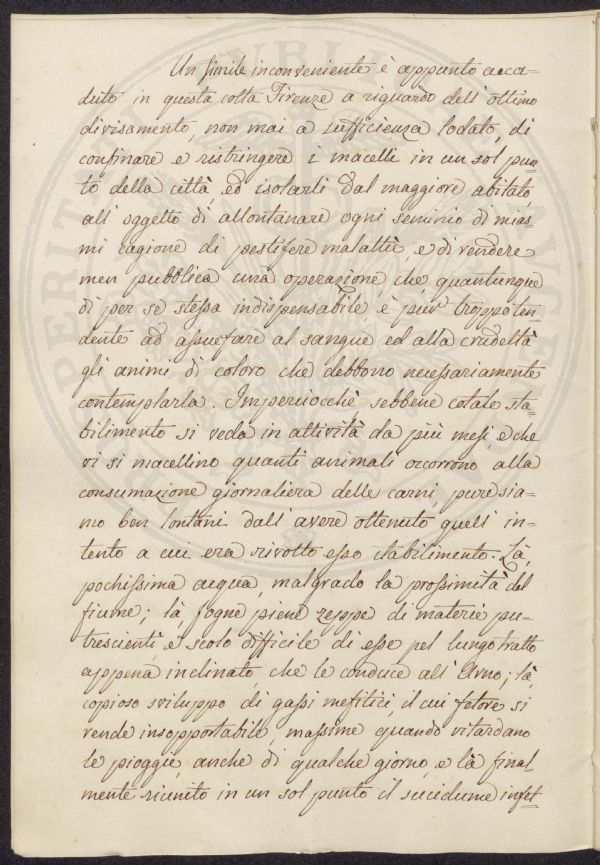 Un simile inconveniente è appunto acca-
duto in questa colta Firenze a riguardo dell'ottimo
divisamento, non mai a sufficienza lodato, di
confinare e ristringere i macelli in un sol pun-
to della città, ed isolarli dal maggiore abitato,
all'oggetto di allontanare ogni seminio di mias-
mi cagione di pestifere malattie e di rendere
men pubblica una operazione, che quantunque
di per se stessa indispensabile è pur troppo ten-
dente ad assuefare al sangue ed alla crudeltà
gli animi di coloro che debbono necessariamente
contemplarla. Imperciocchè sebbene cotale sta-
bilimento si veda in attività da più mesi, e che
vi si macellino quanti animali occorrono alla
consumazione giornaliera delle carni, pure sia-
mo ben lontani dall'avere ottenuto quell'in-
tento a cui era rivolto esso stabilimento. Là,
pochissima acqua, malgrado la prossimità del
fiume; là fogne piene zeppe di materie pu-
trescienti e scolo difficile di esse pel lungo tratto
appena inclinato, che le conduce all'Arno; là,
copioso sviluppo di gassi mefitici, il cui fetore si
rende insopportabile, massime quando ritardano
le pioggie anche di qualche giorno, e là final-
mente riunito in un sol punto il sucidume infet-
PERITVRA